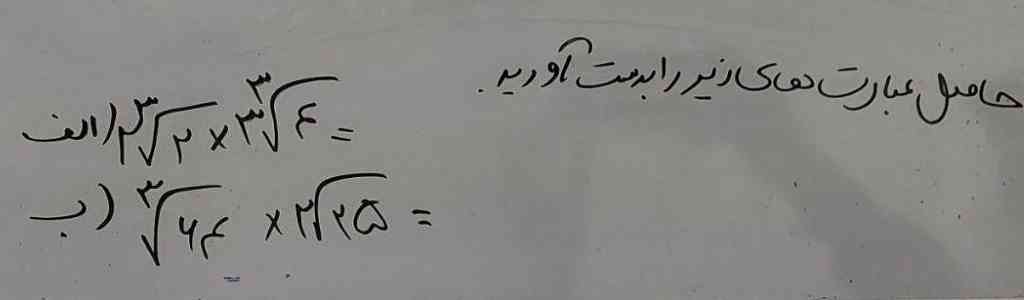 حاصل عبارت های زیر را بدست آورید.
الف) ۲∛۲ × ۳∛۴ =
ب) ∛۶۴ × ۲√۲۵ =